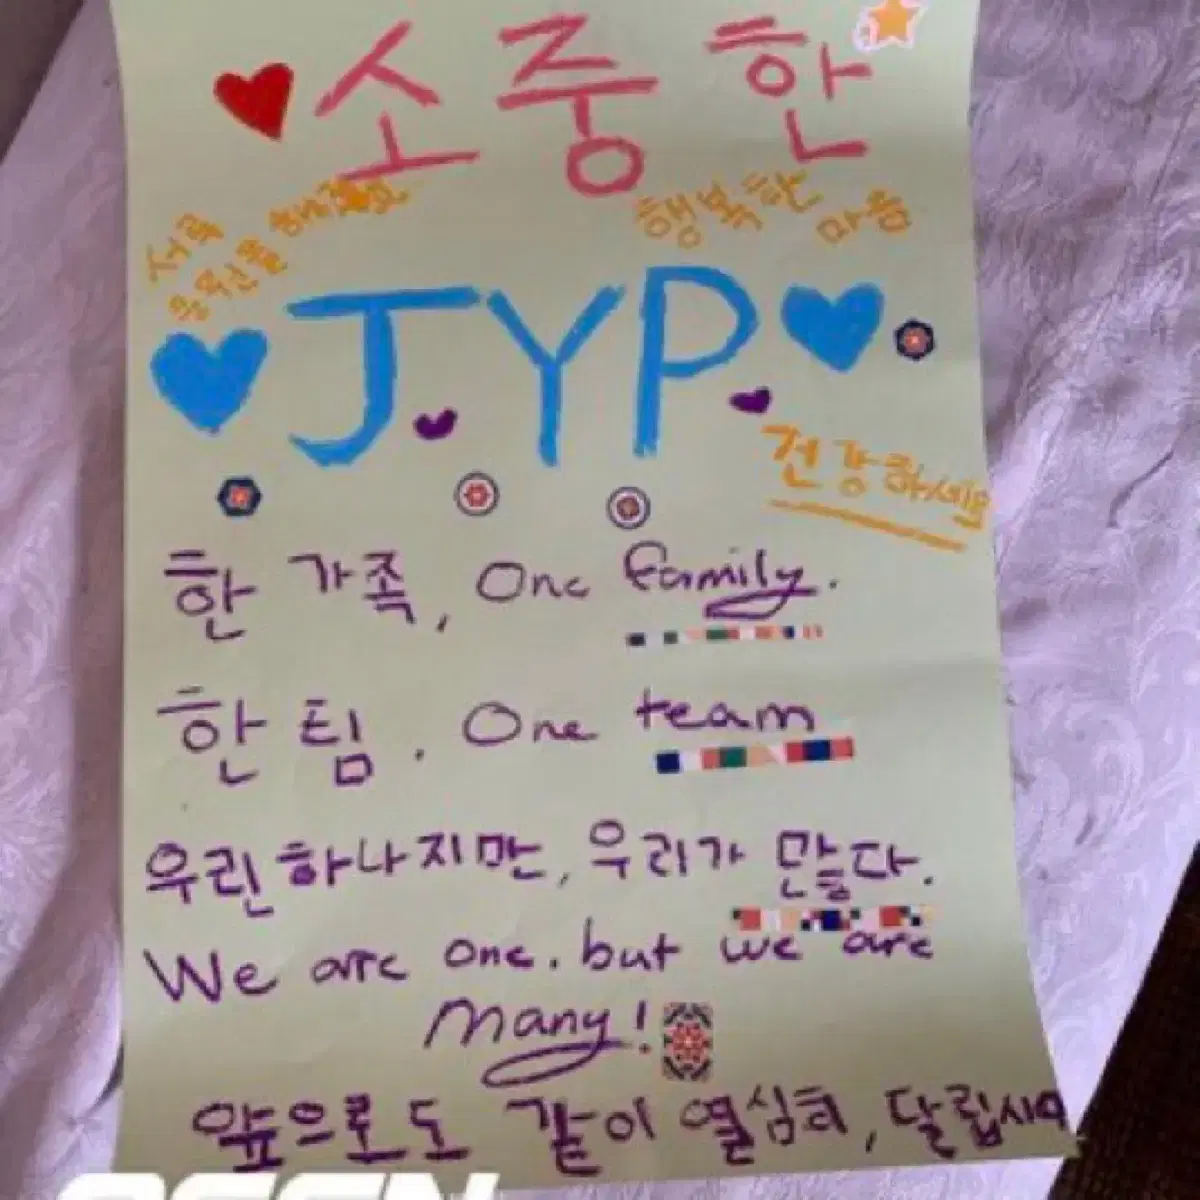 소중한
서로
응원을 해주고
행복한 마음
JYP
건강하세요
한 가족, One family.
한 팀. One team
우린 하나지만, 우리가 많다.
We are one. but we are
many!
앞으로도 같이 열심히, 달립시다
OSEN